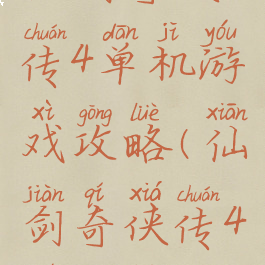 chuán dān jī yóu
传4单机游
xì gōng lüè xiān
戏攻略(仙
jiàn qí xiá chuán
剑奇侠传4